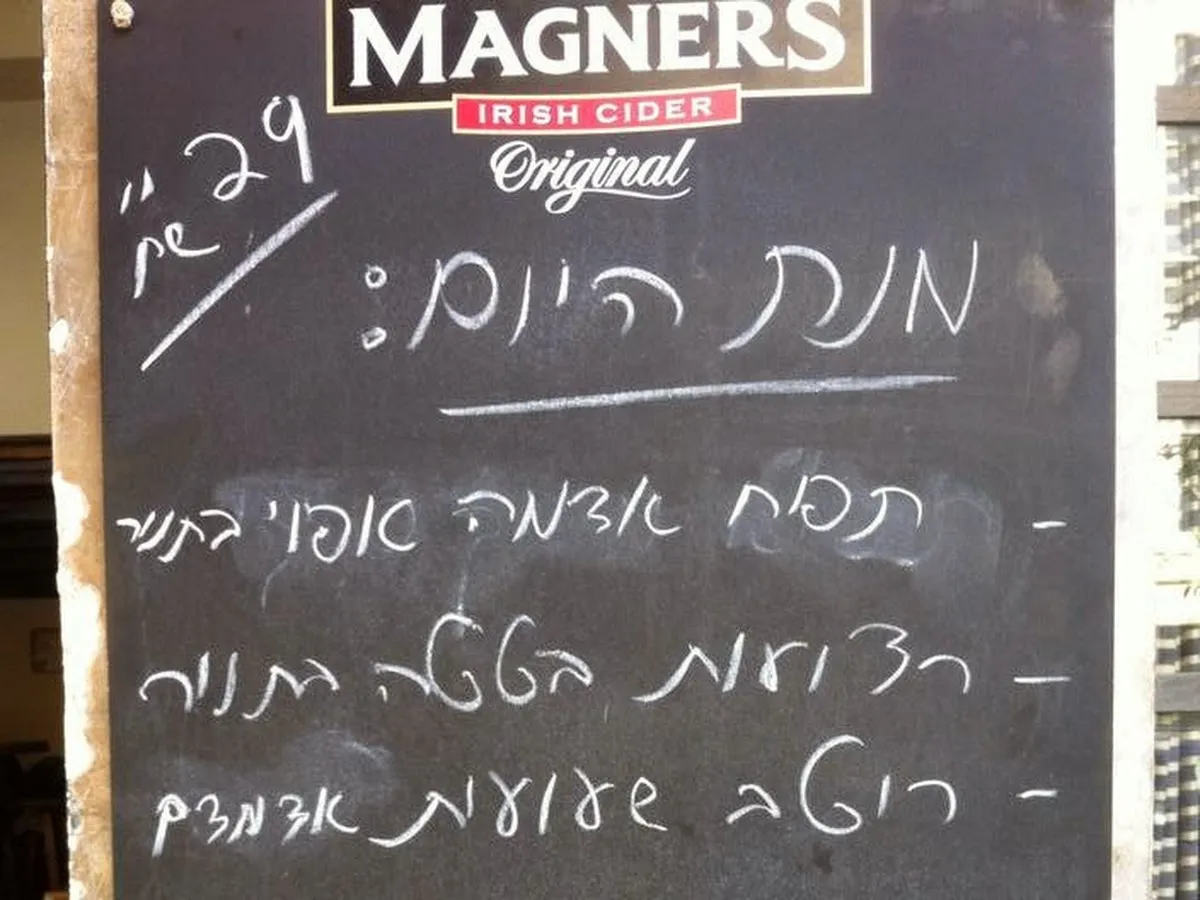 MAGNERS
IRISH CIDER
Original
29
ש"ח
מנת היום:
- תפוח אדמה אפוי בתנור
- רצועות בטטה בתנור
- רוטב שעועית אדמדם